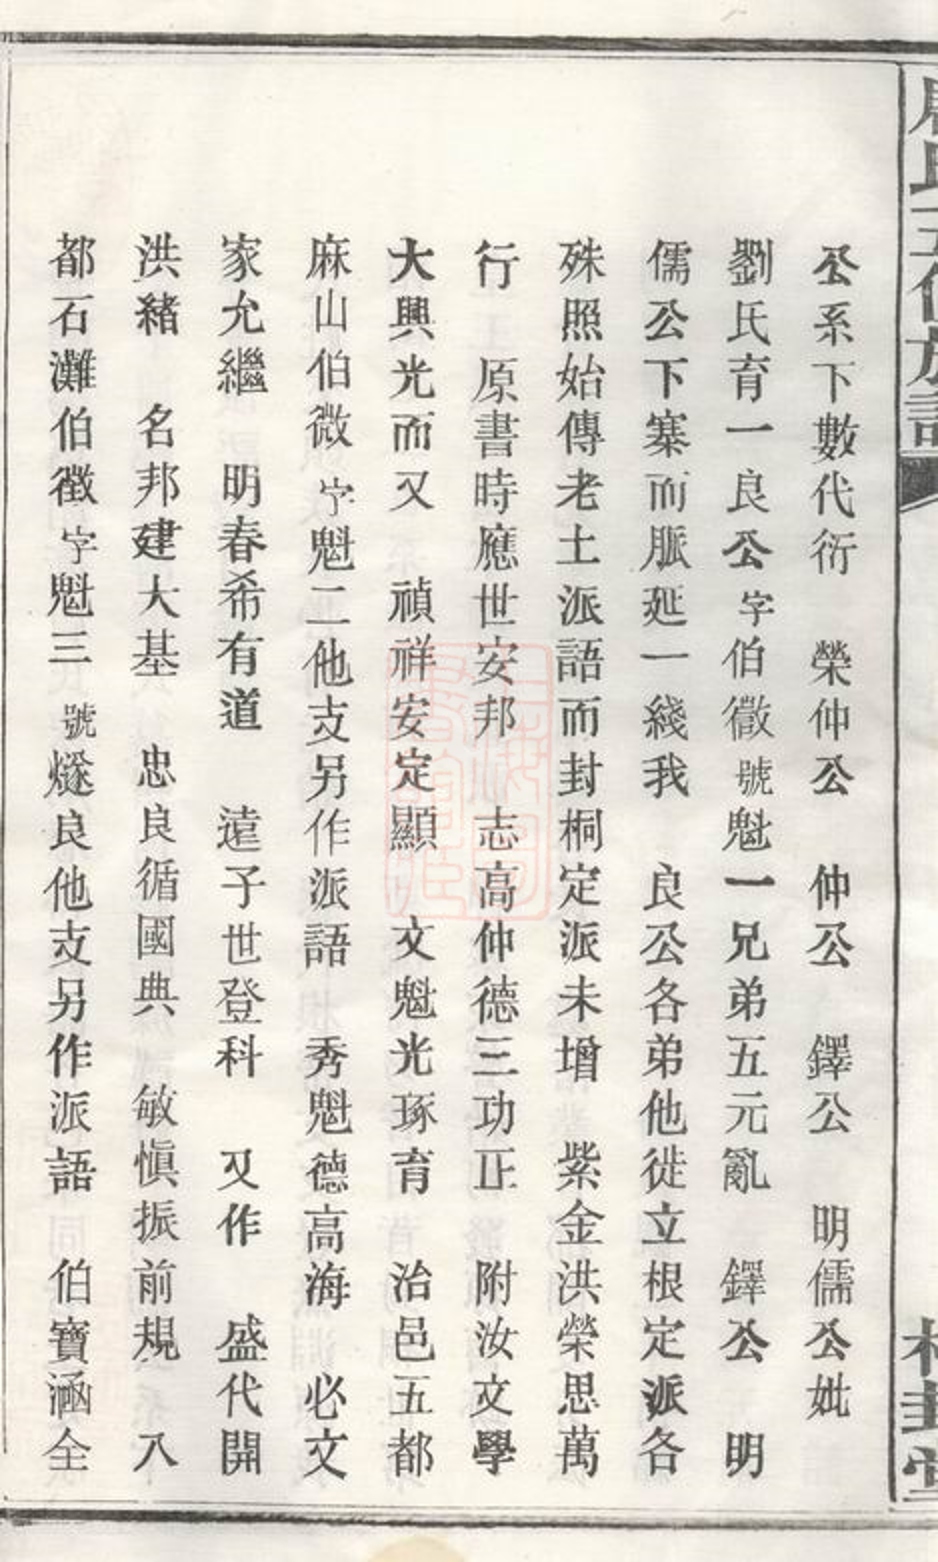 周氏五修族譜
桐封堂
公系下數代衍　榮仲公　仲公　鐸公　明儒公妣
劉氏育一良公字伯徽號魁一兄弟五元亂　鐸公　明
儒公下寨而脈延一綫我　良公各弟他徙立根定派各
殊照始傳老土派語而封桐定派未增　紫金洪榮思萬
行　原書時應世安邦　志高仲德三功正　附汝文學
大興光而又　禎祥安定顯　文魁光琢育　治邑五都
麻山伯微字魁二他支另作派語　秀魁德高海　必文
家允繼　明春希有道　遠子世登科　又作　盛代開
洪緒　名邦建大基　忠良循國典　敏慎振前規　八
都石灘伯徵字魁三號燧良他支另作派語　伯寶涵全